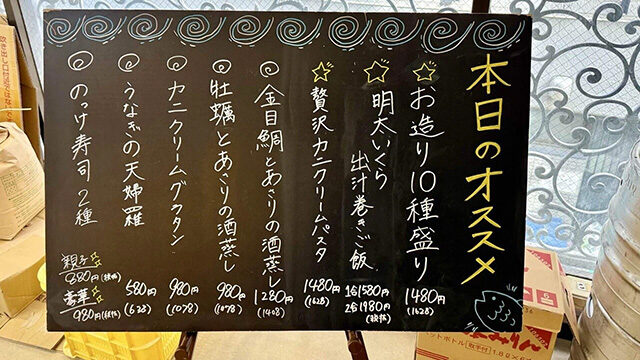 本日のオススメ
☆お造り10種盛り
1480円
(1628)
☆明太いくら
出汁巻きご飯
1合1580円
2合1980円
(税抜)
☆贅沢カニクリームパスタ
1480円
(1628)
◎金目鯛とあさりの酒蒸し
1280円
(1408)
◎牡蠣とあさりの酒蒸し
980円
(1078)
◎カニクリームグラタン
980円
(1078)
◎うなぎの天婦羅
580円
(638)
◎のっけ寿司2種
親子☆
880円(税抜)
豪華☆
980円(税抜)
みりん